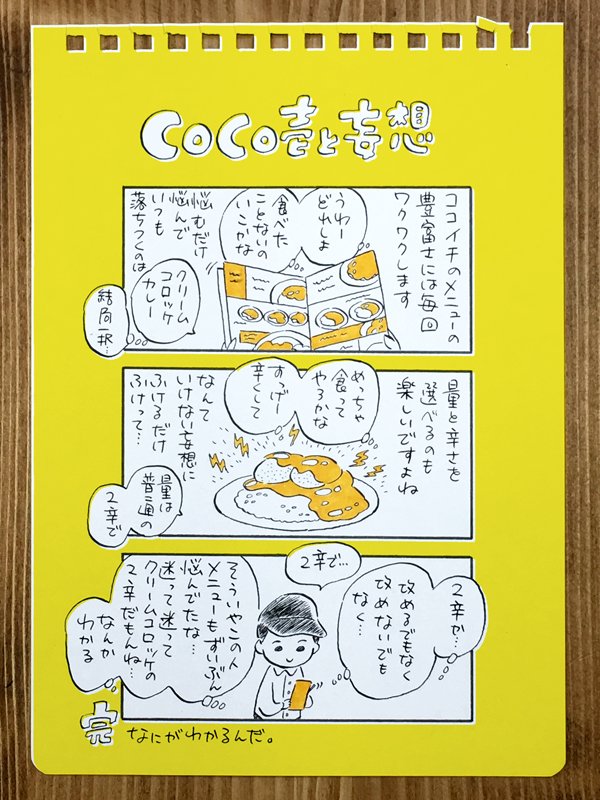 CoCo壱と妄想
ココイチのメニューの
豊富さには毎回
ワクワクします
うわー
どれしよ
食べた
ことないの
いこかな
悩むだけ
悩んで
いつも
落ちつくのは
クリーム
コロッケ
カレー
結局一択…
量と辛さを
選べるのも
楽しいですよね
めっちゃ
食って
やろかな
すっげー
辛くして
なんて
いけない妄想に
ふけるだけ
ふけって…
量は
普通の
2辛で
2辛で…
2辛か…
攻めるでもなく
攻めないでも
なく…
そういやこの人
メニューもずいぶん
悩んでたな…
迷って迷って
クリームコロッケの
2辛だもんね…
なんか
わかる
完
なにがわかるんだ。